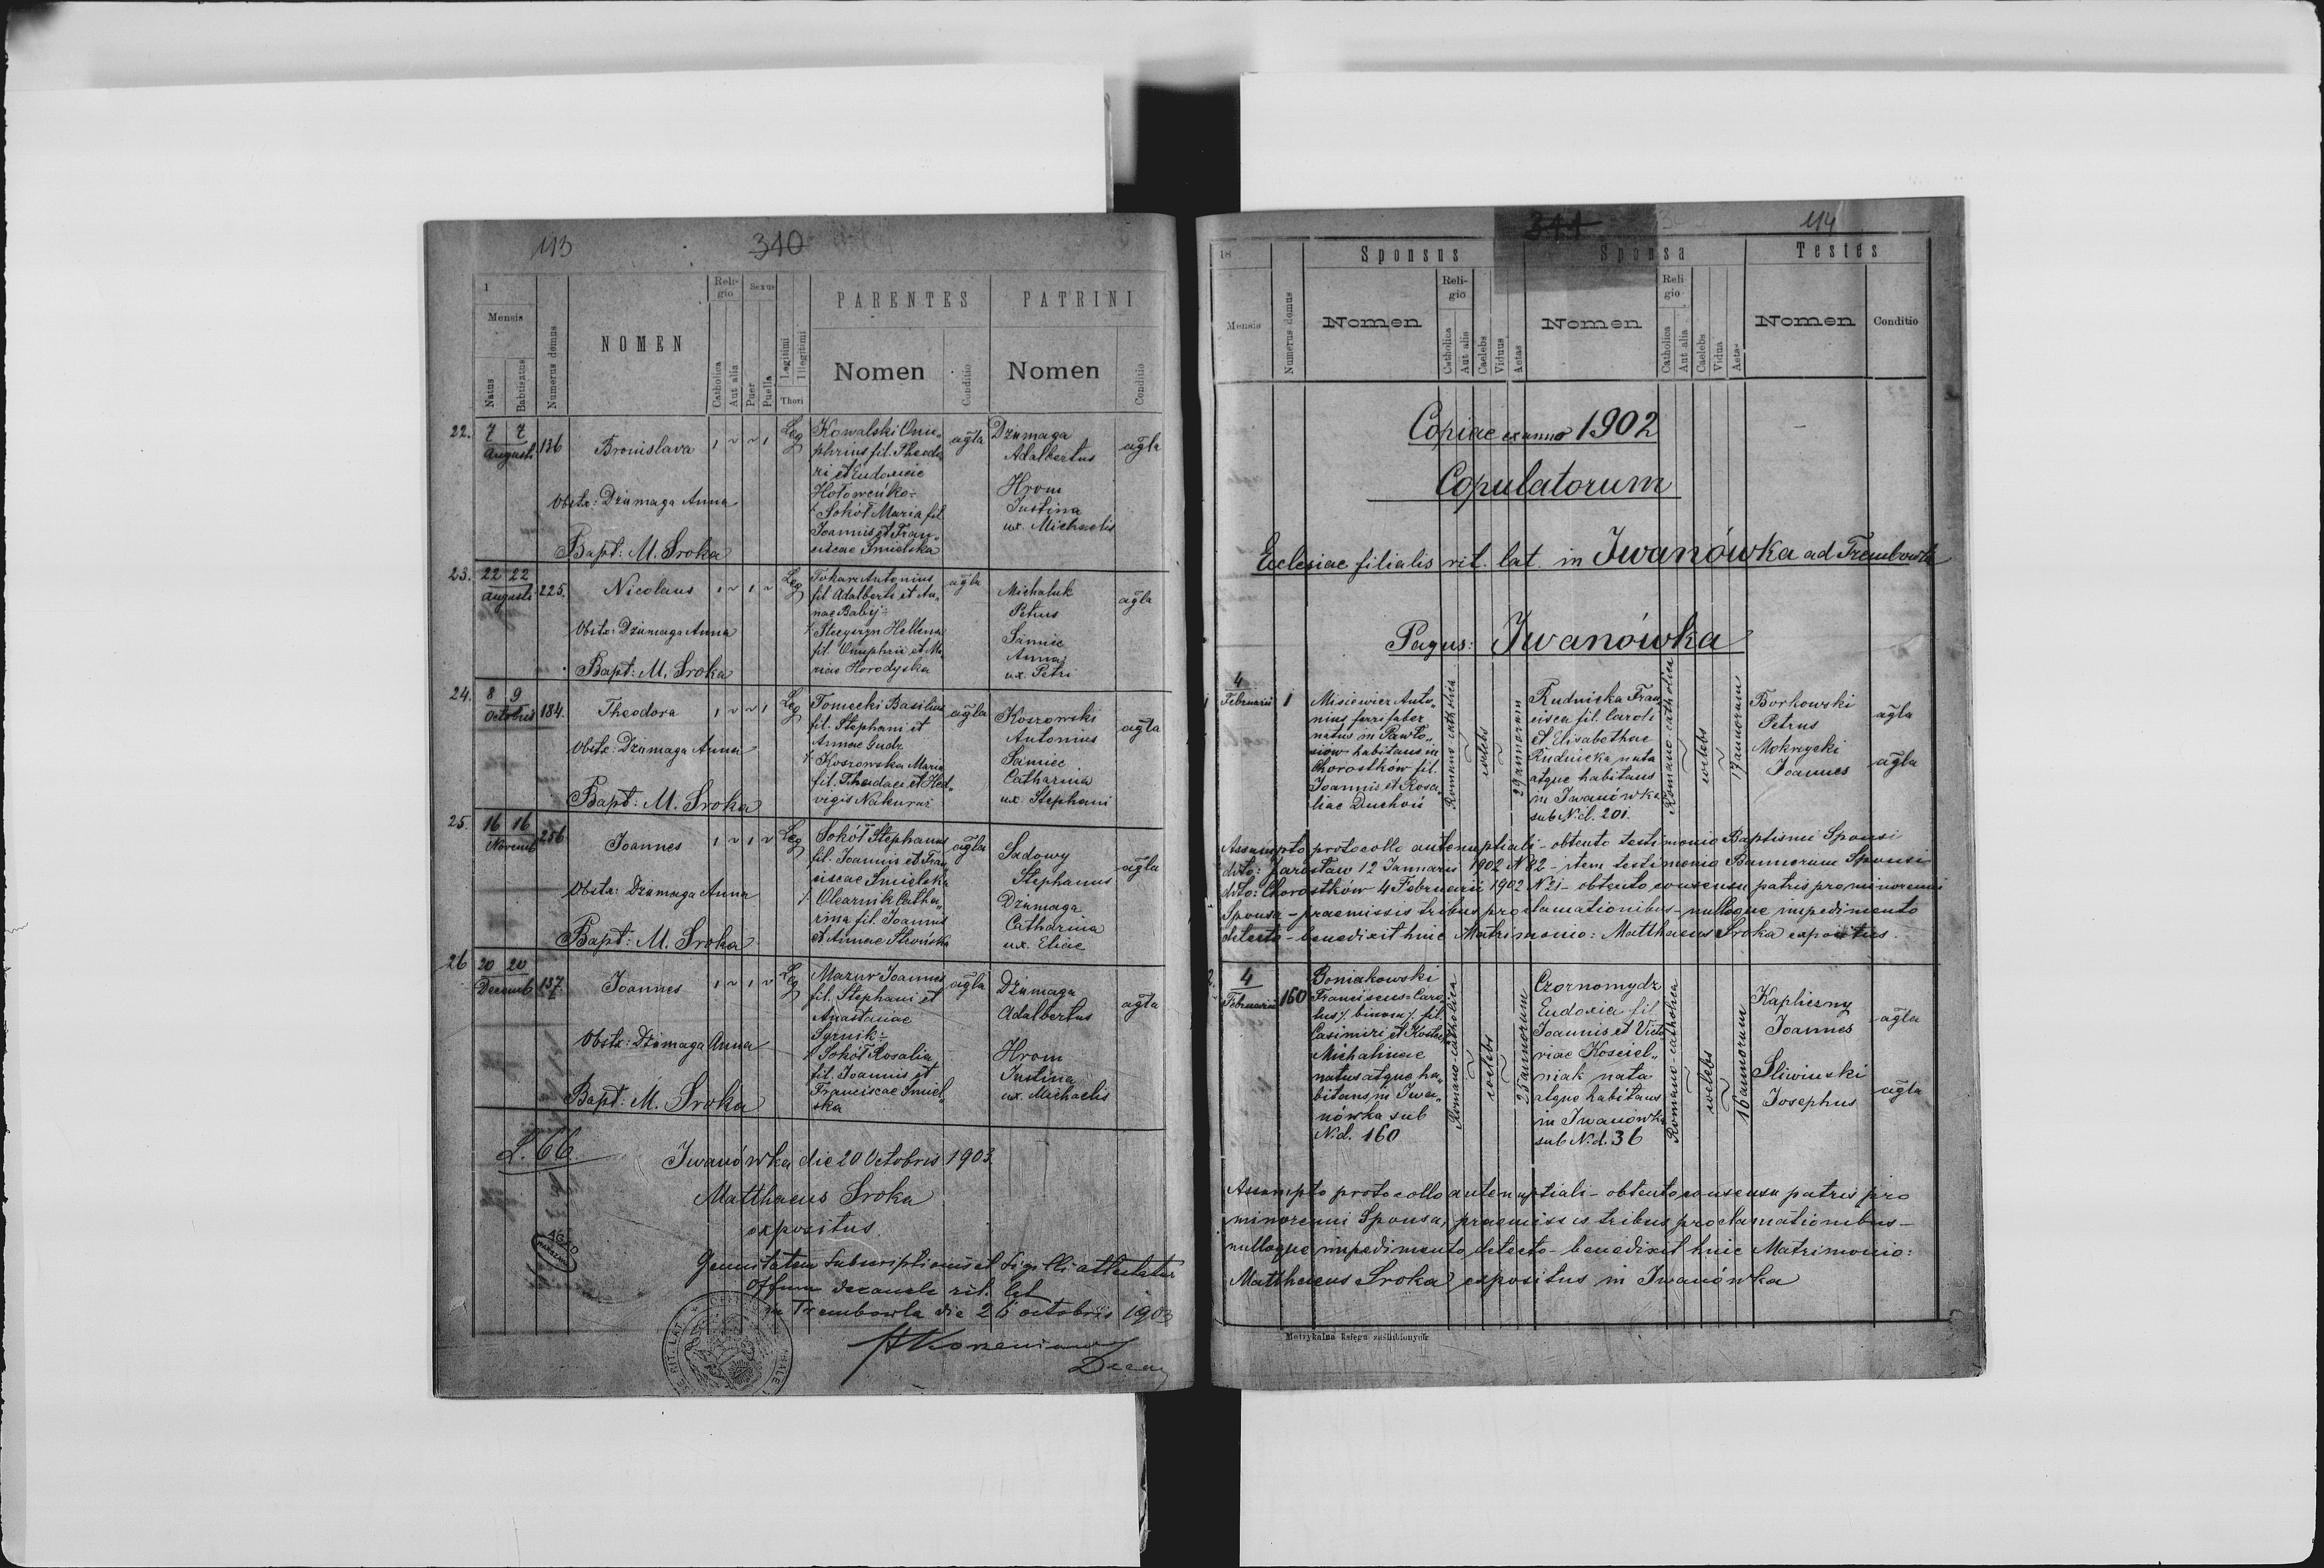 113
310
1
Mensis
Natus
Babtisatus
Numerus domus
NOMEN
Reli-
gio
Catholica
Aut alia
Sexus
Puer
Puella
Legitimi
Illegitimi
Thori
PARENTES
Nomen
Conditio
PATRINI
Nomen
Conditio
22.
7 7
Augusti
136
Bronislava
Obstx: Dżumaga Anna
Bapt: M. Sroka
Leg
Kowalski Onu„
phrius fil. Theodo
ri et Eudoxiae
Hołoweńko
Sokół Maria fil.
Joannis et Fran„
ciscae Smielska
agla
Dżumaga
Adalbertus
Hrom
Justina
ux. Michaelis
agla
23.
22 22
Augusti
225.
Nicolaus
Obstx: Dżumaga Anna
Bapt: M. Sroka
Leg
Tokarz Antonius
fil. Adalberti et An„
nae Baby
Hellena
fil. Onuphrii et Ma
riae Horodyska
agla
Michaluk
Petrus
Samiec
Anna
ux. Petri
agla
24.
8 9
Octobris
184.
Theodora
Obstx: Dżumaga Anna
Bapt: M. Sroka
Leg
Tomecki Basilius
fil. Stephani et
Annae Gudz
Koszowska Maria
fil. Thadaei et Hed„
vigis
agla
Koszowski
Antonius
Samiec
Catharina
ux. Stephani
agla
25.
16 16
Novemb
256
Joannes
Obstx: Dżumaga Anna
Bapt: M. Sroka
Leg
Sokół Stephanus
fil. Joannis et Fran
ciscae Smielska
Olearnik Catha„
rina fil. Joannis
et Annae
agla
Sadowy
Stephanus
Dżumaga
Catharina
ux. Eliae
agla
26
20 20
Decemb
137
Joannes
Obstx: Dżumaga Anna
Bapt: M. Sroka
Leg
Mazur Joannes
fil. Stephani et
Anastasiae
Syrnik
Sokół Rosalia
fil. Joannis et
Franciscae Smiel„
ska
agla
Dżumaga
Adalbertus
Hrom
Justina
ux. Michaelis
agla
L. 66.
Iwanówka die 20 Octobris 1903.
Matthaeus Sroka
expositus
AGAD
subscriptionis et sigilli
decanale rit. lat
in Trembowla die 26 octobris 1903
114
311
18
Mensis
Numerus domus
Sponsus
Nomen
Reli-
gio
Catholica
Aut alia
Caelebs
Viduus
Aetas
Sponsa
Nomen
Reli
gio
Catholica
Aut alia
Caelebs
Vidua
Aetas
Testes
Nomen
Conditio
Copiae ex anno 1902
Copulatorum
Ecclesiae filialis rit. lat. in Iwanówka ad Trembowla
Pagus: Iwanówka
1
4
Februarii
1
Misiewicz Anto„
nius
natus in Pawło„
siow habitans in
Chorostków fil.
Joannis et Rosa„
liae Duchoń
Romano catholica
coelebs
29 annorum
Rudnicka Fran
cisca fil. Caroli
et Elisabethae
Rudnicka nata
atque habitans
in Iwanówka
sub N.d. 201.
Romano-catholica
coelebs
17 annorum
Borkowski
Petrus
agla
Mokrzycki
Joannes
agla
Assumpto protocollo antenuptiali - obtento testimonio Baptismi Sponsi
dtto: Jarosław 12 Januarii 1902 N 82 - item testimonio Bannorum Sponsi
dtto: Chorostków 4 Februarii 1902 N 21 - obtento consensu patris pro minorenni
Sponsa - praemissis tribus proclamationibus - nulloque impedimento
detecto - benedixit huic Matrimonio: Matthaeus Sroka expositus.
2.
4
Februarii
160
Boniakowski
Franciscus-Caro
lus /. binom /. fil.
Casimiri et
Michalinae
natus atque ha„
bitans in Iwa„
nówka sub
N.d. 160
Romano-catholica
coelebs
25 annorum
Czornomydz
Eudoxia fil.
Joannis et Victo
riae Kosciel„
niak nata
atque habitans
in Iwanówka
sub N.d. 36
Romano-catholica
coelebs
16 annorum
Kapliczny
Joannes
agla
Sliwinski
Josephus
agla
Assumpto protocollo antenuptiali - obtento consensu patris pro
minorenni Sponsa, praemissis tribus proclamationibus -
nulloque impedimento detecto - benedixit huic Matrimonio:
Matthaeus Sroka expositus in Iwanówka
Metrykalna księga zaślubionych